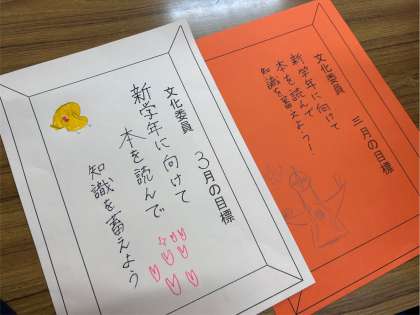 文化委員　3月の目標
新学年に向けて
本を読んで
知識を蓄えよう
文化委員　三月の目標
新学年に向けて
本を読んで
知識を蓄えよう!